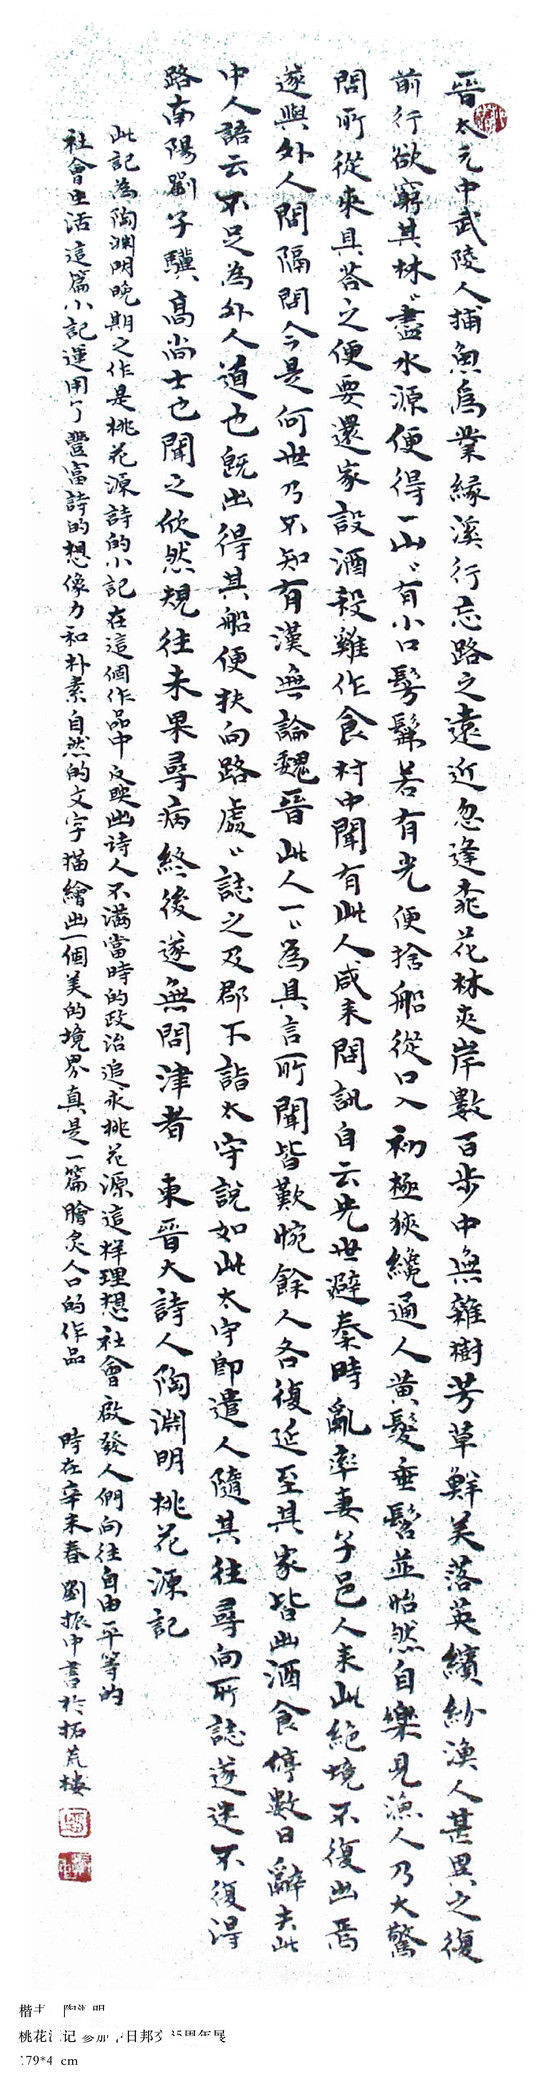 晋太元中武陵人捕魚為業緣溪行忘路之遠近忽逢桃花林夾岸數百步中無雜樹芳草鮮美落英繽紛漁人甚異之復
前行欲窮其林〻盡水源便得一山〻有小口髣髴若有光便捨船從口入初極狹纔通人黄髮垂髫並怡然自樂見漁人乃大驚
問所從來具荅之便要還家設酒殺雞作食村中聞有此人咸来問訊自云先世避秦時亂率妻子邑人来此絕境不復出焉
遂與外人間隔問今是何世乃不知有漢無論魏晋此人一〻為具言所聞皆歎惋餘人各復延至其家皆出酒食停數日辭去此
中人語云不足為外人道也既出得其船便扶向路處〻誌之及郡下詣太守說如此太守即遣人隨其往尋向所誌遂迷不復得
路南陽劉子驥高尚士也聞之欣然規往未果尋病終後遂無問津者 東晋大詩人陶淵明桃花源記
此記為陶渊明晚期之作是桃花源詩的小記在這個作品中反映出诗人不滿當時的政治追求桃花源這样理想社會啟發人們向往自由平等的
社會生活這篇小記運用了豐富詩的想像力和朴素自然的文字描繪出一個美的境界真是一篇膾炙人口的作品 時在辛未春 劉振中書於拓荒樓
楷
桃花 记 参加 日邦 周年展
cm